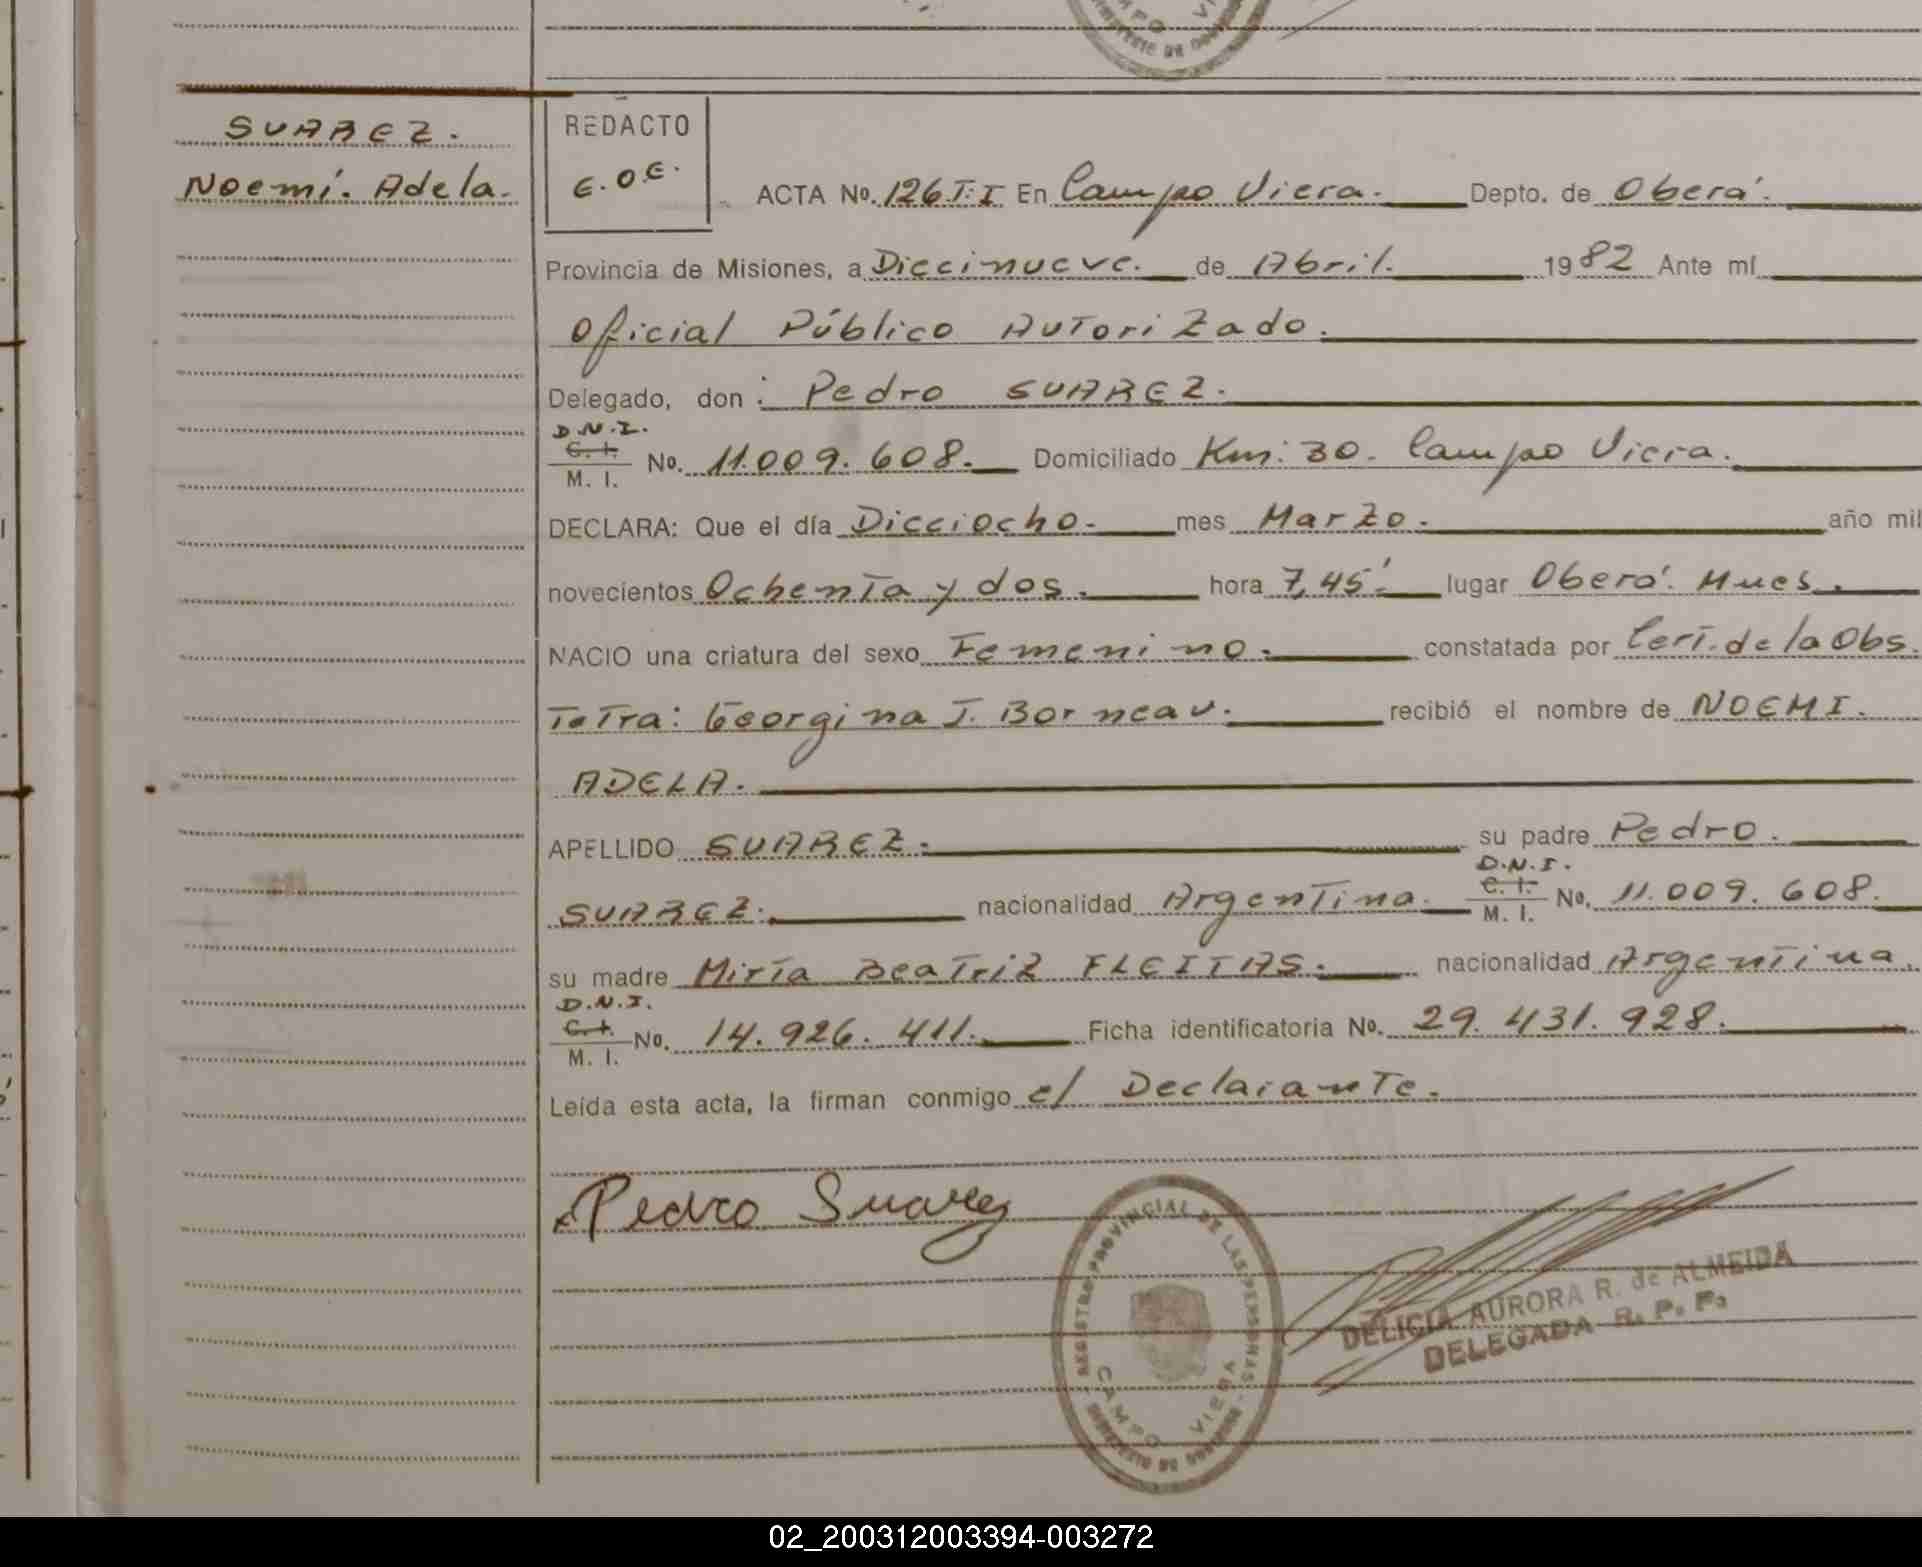 SUAREZ.
Noemí. Adela.
REDACTO
E.O.E.
ACTA No. 126 T: I En Campo Viera. Depto. de Oberá.
Provincia de Misiones, a Diecinueve. de Abril. 1982 Ante mí
Oficial Público Autorizado.
Delegado, don: Pedro SUAREZ.
D.N.I.
C. I.
M. I.
No. 11.009.608. Domiciliado Km: 30. Campo Viera.
DECLARA: Que el día Dieciocho. mes Marzo. año mil
novecientos Ochenta y dos. hora 7,45' lugar Oberá. Mnes.
NACIO una criatura del sexo Femenino. constatada por Cert. de la Obs.
Tetra: Georgina J. Borneau. recibió el nombre de NOEMI.
ADELA.
APELLIDO SUAREZ. su padre Pedro.
SUAREZ. nacionalidad Argentina. D.N.I. C. I. M. I. No. 11.009.608.
su madre Miría Beatriz FLEITAS. nacionalidad Argentina.
D.N.I.
C. I.
M. I.
No. 14.926.411. Ficha identificatoria No. 29.431.928.
Leída esta acta, la firman conmigo el Declarante.
Pedro Suarez
REGISTRO PROVINCIAL DE LAS PERSONAS
CAMPO VIERA
DELICIA AURORA R. de ALMEIDA
DELEGADA R. P. P.
02_200312003394-003272